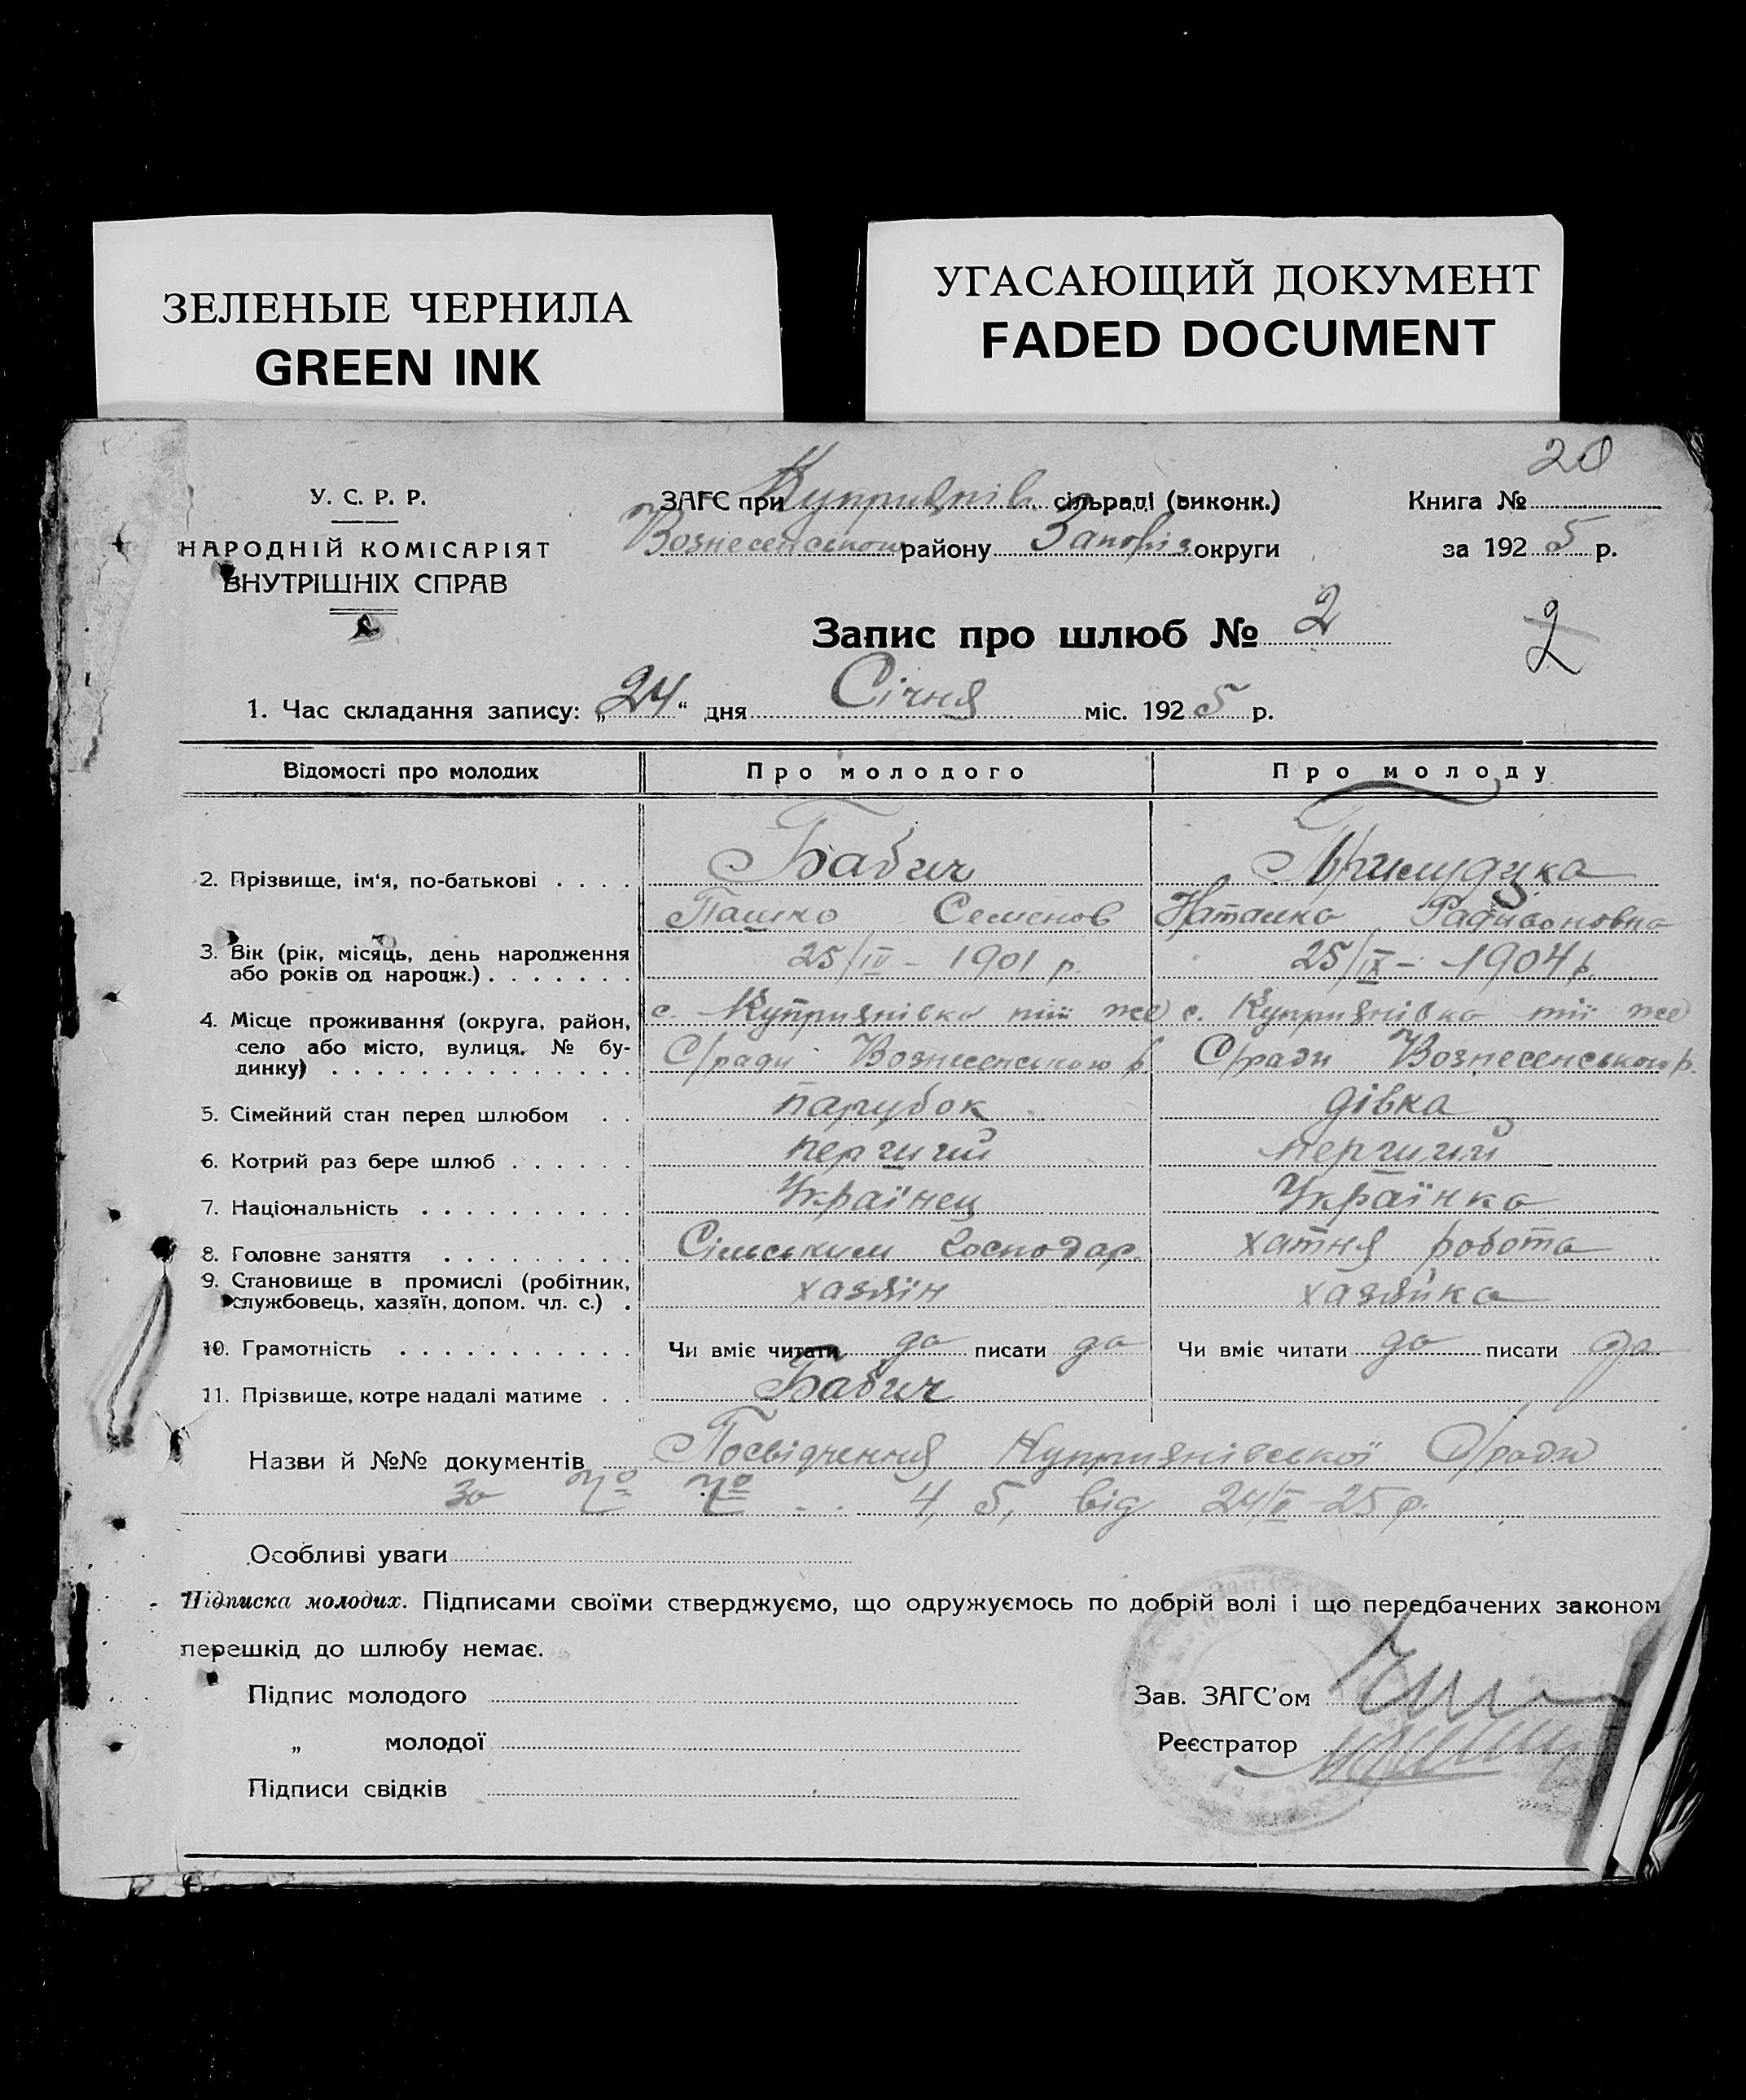 ЗЕЛЕНЫЕ ЧЕРНИЛА
GREEN INK
УГАСАЮЩИЙ ДОКУМЕНТ
FADED DOCUMENT
20
У. С. Р. Р.
НАРОДНІЙ КОМІСАРІЯТ
ВНУТРІШНІХ СПРАВ
ЗАГС при Куприянів. сільраді (виконк.)
Вознесенського району Запоріз округи
Книга №
за 1925 р.
Запис про шлюб № 2
2
1. Час складання запису: „24“ дня Січня міс. 1925 р.
Відомості про молодих Про молодого Про молоду
2. Прізвище, ім'я, по-батькові . . . . Бабич
Пашко Семенов Наташка Радивоновна
3. Вік (рік, місяць, день народження
або років од народж.) . . . . . . . 25/IV – 1901 р. 25/IX – 1904 р.
4. Місце проживання (округа, район, с. Куприянівка тії же с. Куприянівка тії же
село або місто, вулиця, № бу-
динку) . . . . . . . . . . . . . . С/ради Вознесенського р. С/ради Вознесенського р.
5. Сімейний стан перед шлюбом . . парубок дівка
6. Котрий раз бере шлюб . . . . . . перший перший
7. Національність . . . . . . . . . . Українец Українка
8. Головне заняття . . . . . . . . . Сільським господар. хатня робота
9. Становище в промислі (робітник,
службовець, хазяїн, допом. чл. с.) . хазяїн хазяйка
10. Грамотність . . . . . . . . . . . Чи вміє читати да писати да Чи вміє читати да писати да
11. Прізвище, котре надалі матиме . . Бабич
Назви й №№ документів Посвідчення Куприянівської С/ради
за № № 4, 5, від 24/I 25 р.
Особливі уваги
Підписка молодих. Підписами своїми стверджуємо, що одружуємось по добрій волі і що передбачених законом
перешкід до шлюбу немає.
Підпис молодого
„ молодої
Підписи свідків
Зав. ЗАГС'ом
Реєстратор